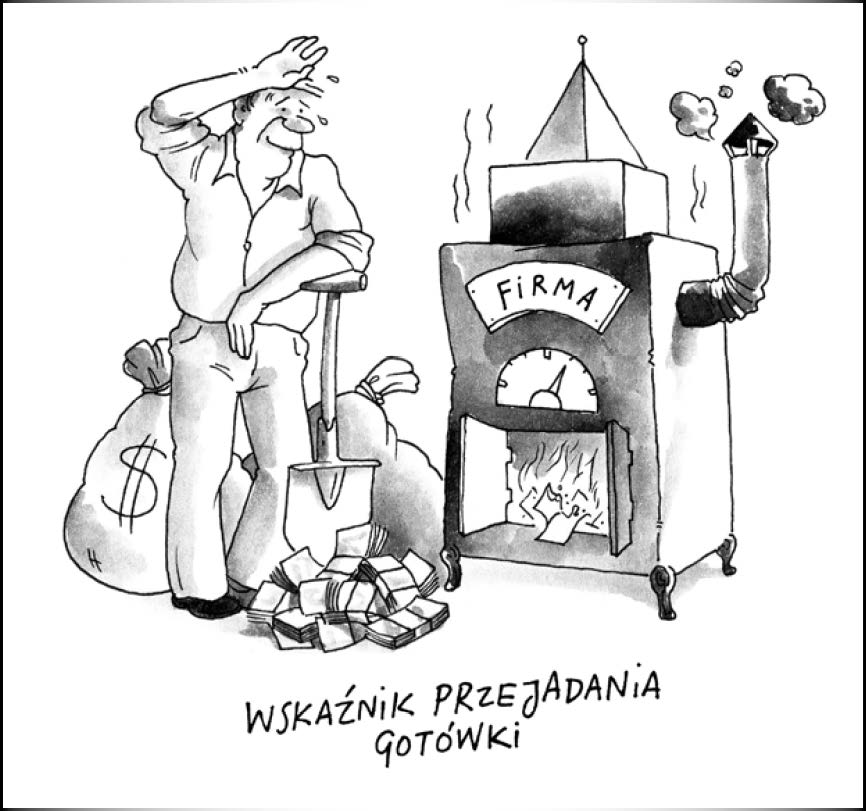 FiRMA
$
WSKAŹNiK PRZEJADANiA
GOTÓWKi